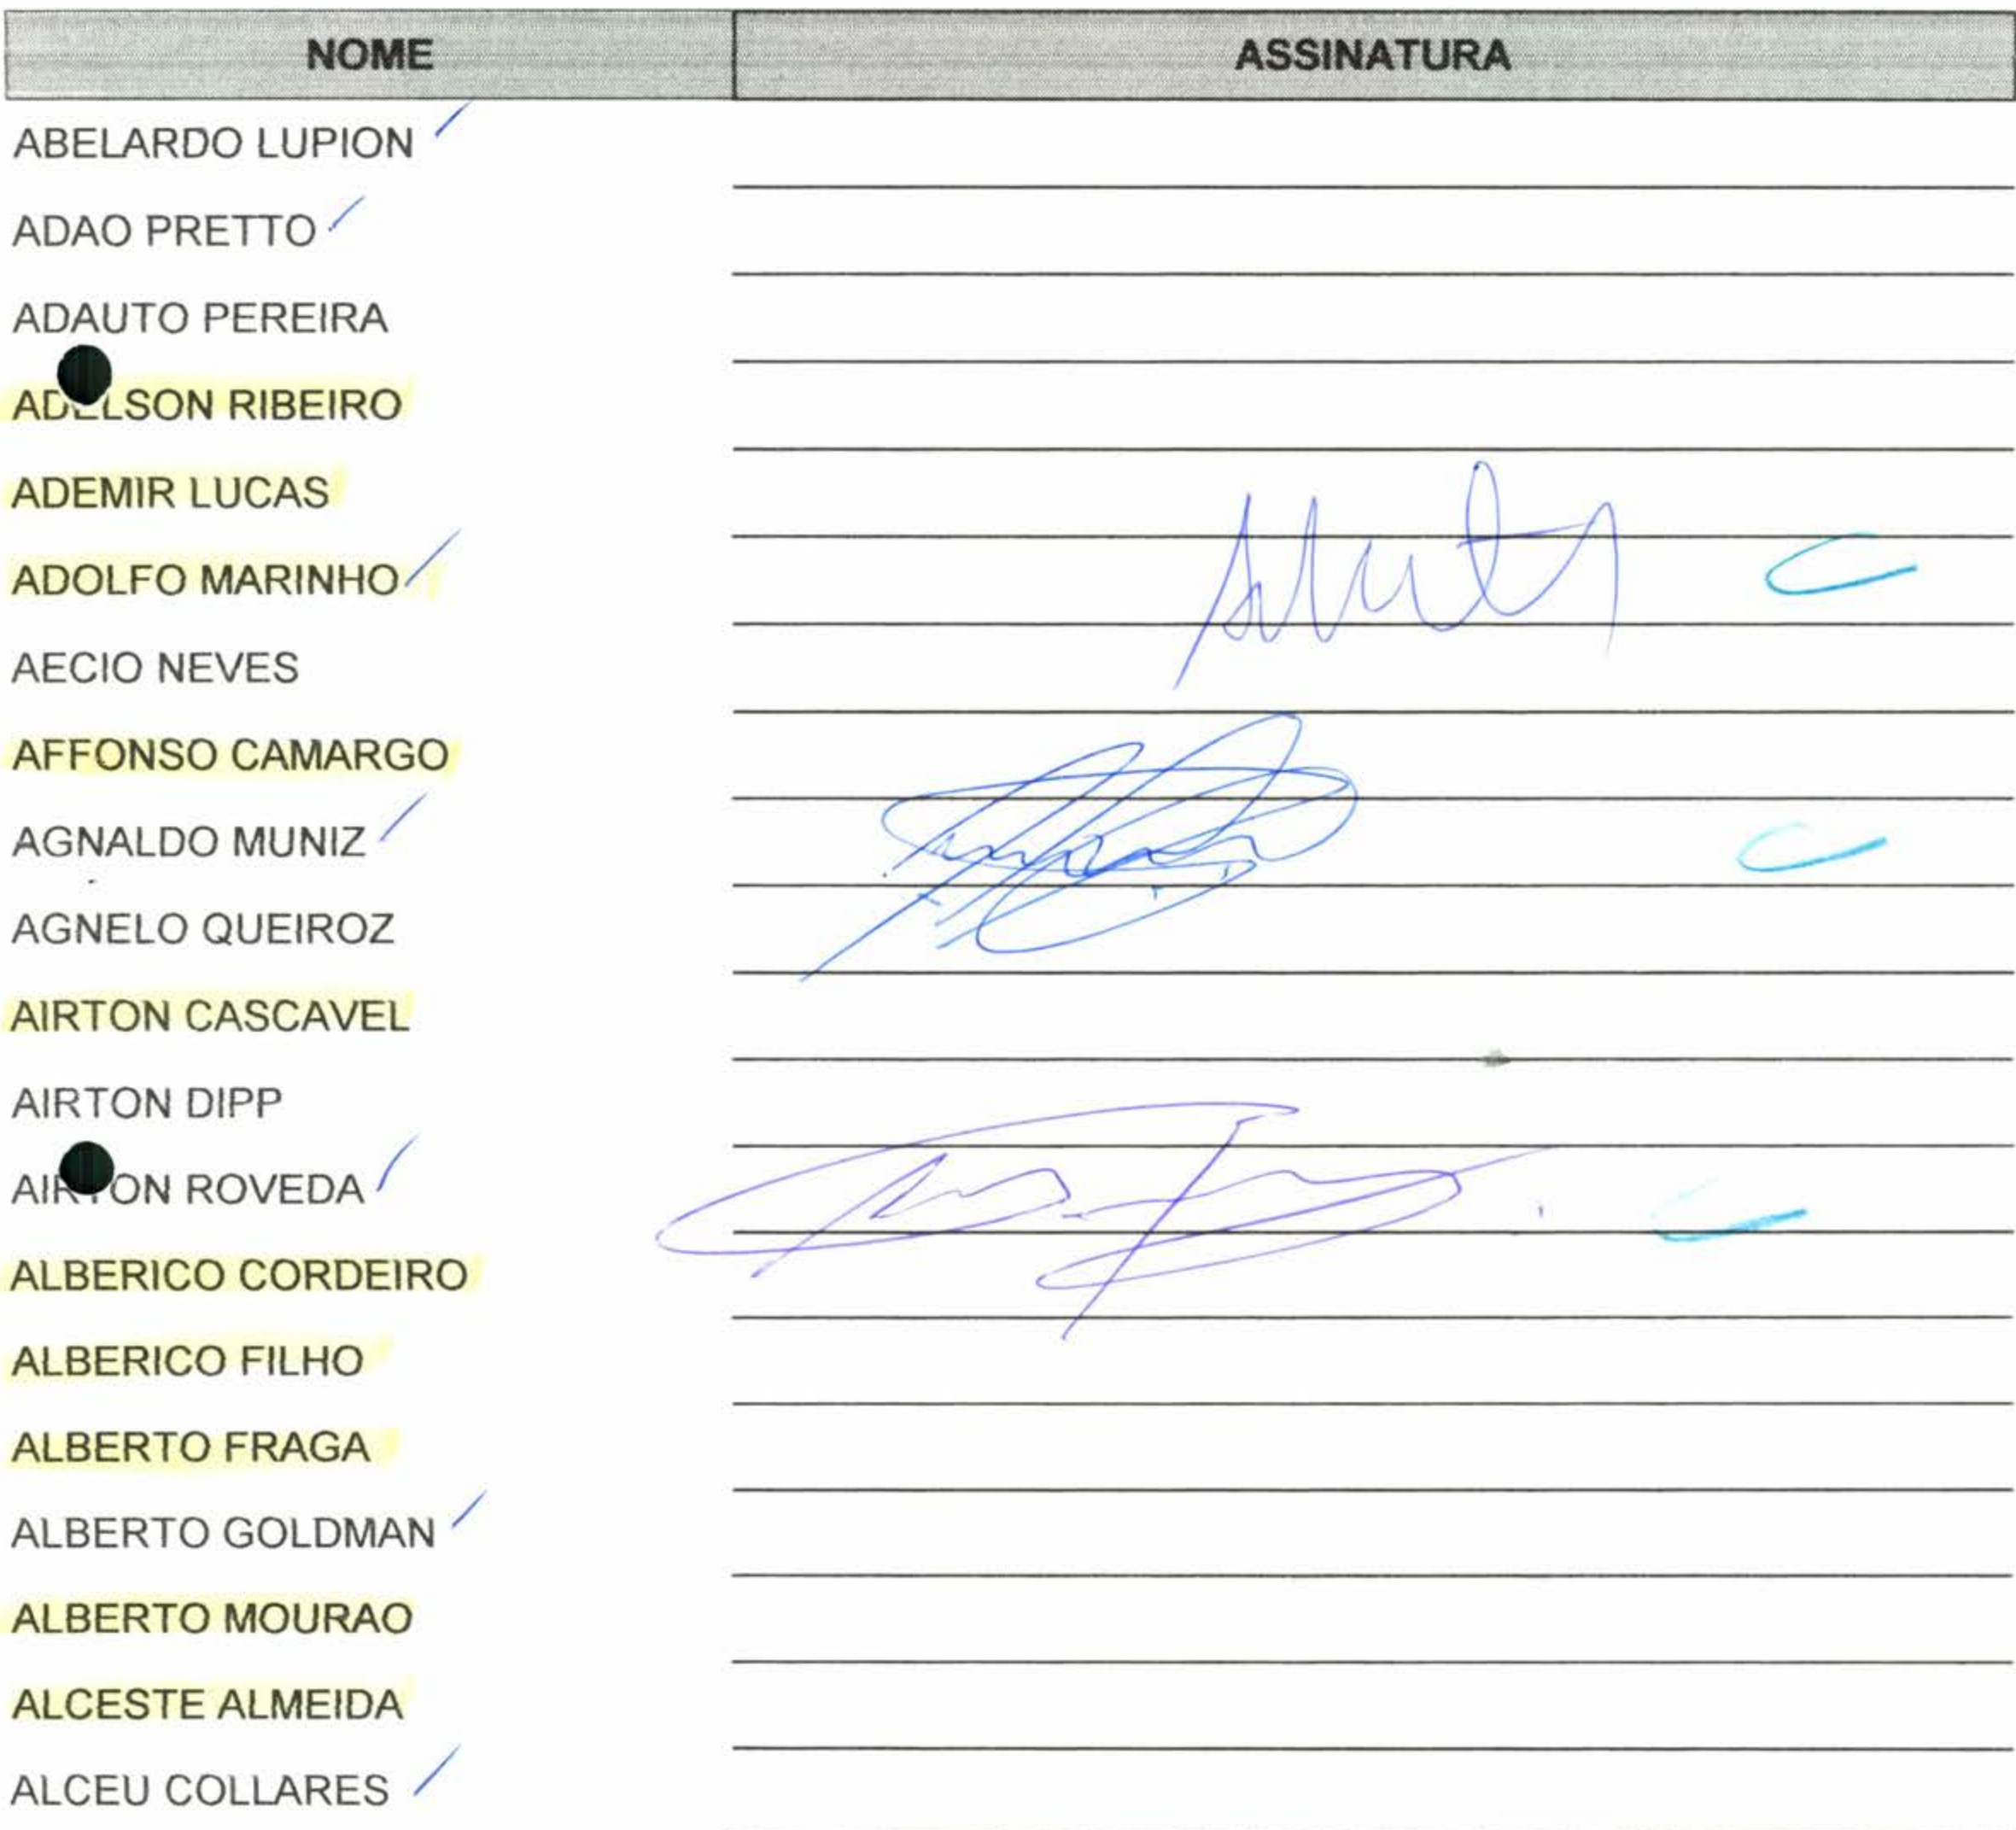 NOME ASSINATURA
ABELARDO LUPION
ADAO PRETTO
ADAUTO PEREIRA
ADELSON RIBEIRO
ADEMIR LUCAS
ADOLFO MARINHO
AECIO NEVES
AFFONSO CAMARGO
AGNALDO MUNIZ
AGNELO QUEIROZ
AIRTON CASCAVEL
AIRTON DIPP
AIRTON ROVEDA
ALBERICO CORDEIRO
ALBERICO FILHO
ALBERTO FRAGA
ALBERTO GOLDMAN
ALBERTO MOURAO
ALCESTE ALMEIDA
ALCEU COLLARES